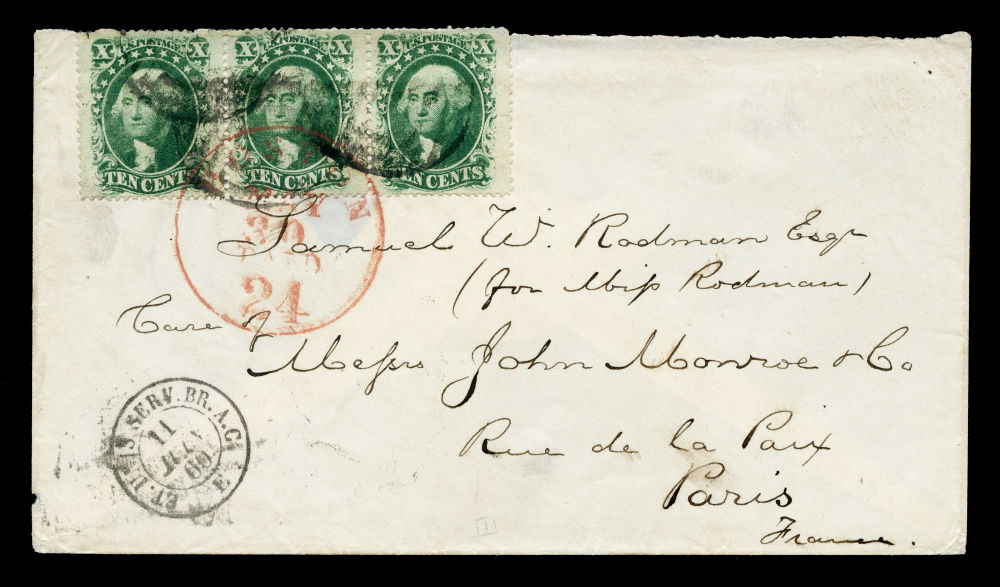 X U.S. POSTAGE X X U.S. POSTAGE X X U.S. POSTAGE X
TEN CENTS TEN CENTS TEN CENTS
MAY
30
PAID
24
Samuel W. Rodman Esqr
(for Miss Rodman)
Care of
Messrs John Monroe & Co
Rue de la Paix
Paris
France.
ET. UNIS SERV. BR. A.C.
11
JUIN
60